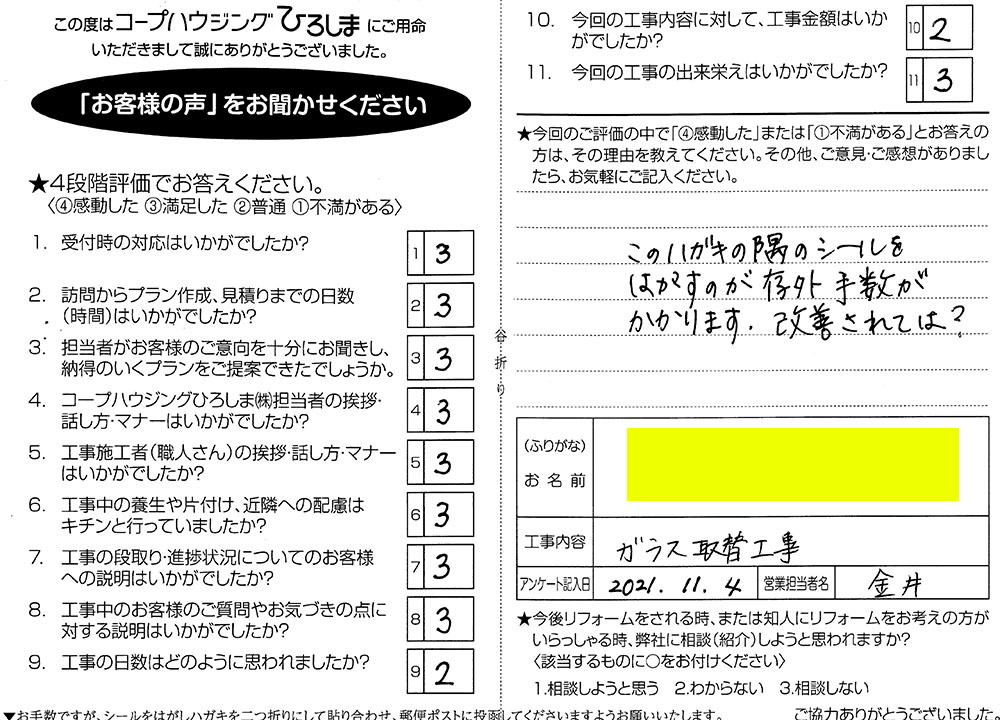 この度はコープハウジングひろしまにご用命
いただきまして誠にありがとうございました。
「お客様の声」をお聞かせください
★4段階評価でお答えください。
〈④感動した ③満足した ②普通 ①不満がある〉
1. 受付時の対応はいかがでしたか?
1 3
2. 訪問からプラン作成、見積りまでの日数
(時間)はいかがでしたか?
2 3
3. 担当者がお客様のご意向を十分にお聞きし、
納得のいくプランをご提案できたでしょうか。
3 3
4. コープハウジングひろしま㈱担当者の挨拶・
話し方・マナーはいかがでしたか?
4 3
5. 工事施工者(職人さん)の挨拶・話し方・マナー
はいかがでしたか?
5 3
6. 工事中の養生や片付け、近隣への配慮は
キチンと行っていましたか?
6 3
7. 工事の段取り・進捗状況についてのお客様
への説明はいかがでしたか?
7 3
8. 工事中のお客様のご質問やお気づきの点に
対する説明はいかがでしたか?
8 3
9. 工事の日数はどのように思われましたか?
9 2
▼お手数ですが、シールをはがしハガキを二つ折りにして貼り合わせ、郵便ポストに投函してくださいますようお願いいたします。
谷折り
10. 今回の工事内容に対して、工事金額はいか
がでしたか?
10 2
11. 今回の工事の出来栄えはいかがでしたか?
11 3
★今回のご評価の中で「④感動した」または「①不満がある」とお答えの
方は、その理由を教えてください。その他、ご意見・ご感想がありまし
たら、お気軽にご記入ください。
このハガキの隅のシールを
はがすのが存外手数が
かかります. 改善されては?
(ふりがな)
お名前
工事内容 ガラス取替工事
アンケート記入日 2021. 11. 4 営業担当者名 金井
★今後リフォームをされる時、または知人にリフォームをお考えの方が
いらっしゃる時、弊社に相談(紹介)しようと思われますか?
〈該当するものに○をお付けください〉
1.相談しようと思う 2.わからない 3.相談しない
ご協力ありがとうございました。